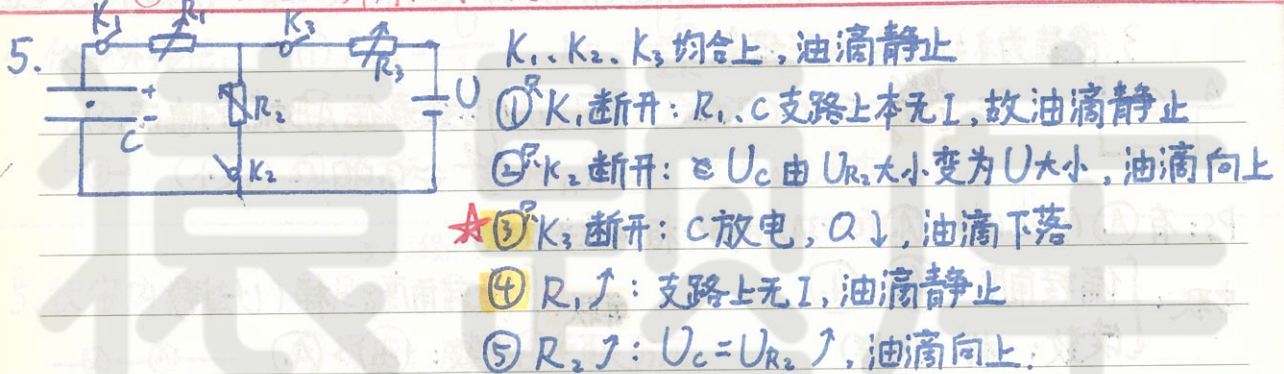 5.
K₁ R₁ K₃ R₃ U R₂ K₂ C + -
K₁、K₂、K₃均合上，油滴静止
①只K₁断开：R₁、C支路上本无I，故油滴静止
②只K₂断开：U_C由U_R₂大小变为U大小，油滴向上
☆③只K₃断开：C放电，Q↓，油滴下落
④R₁↗：支路上无I，油滴静止
⑤R₂↗：U_C=U_R₂↗，油滴向上.